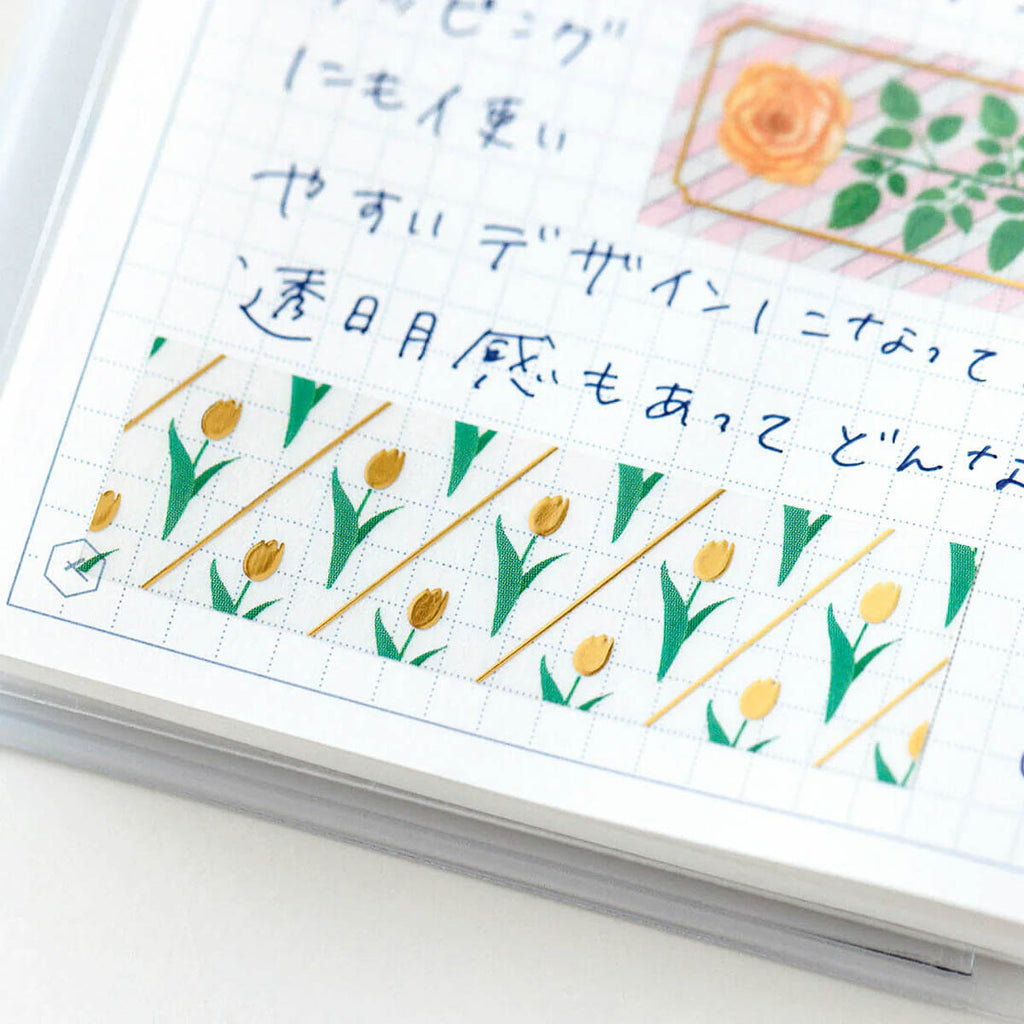 ッピング
にも使い
やすいデザインになって
透明感もあってどんな